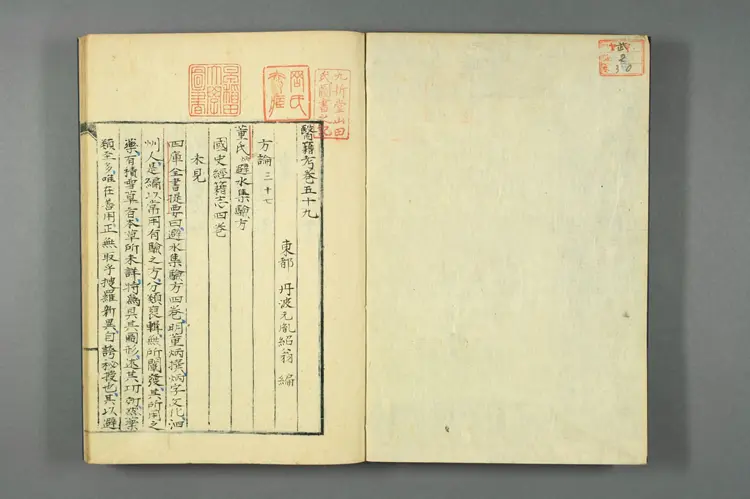 武
2
30
早稲田
大学
図書
九折堂山田
氏図書之記
醫籍考卷五十九
東都 丹波元胤紹翁 編
方論三十七
董氏炳避水集驗方
國史經籍志四卷
未見
四庫全書提要曰避水集驗方四卷明董炳撰炳字文化泗
州人是編以常用有驗之方分類裒輯無所闡發其所用之
藥有積雪草旨本草所未詳特爲具其圖形述其功効然藥
類至多唯在善用正無取乎搜羅新異自誇秘授也其以避